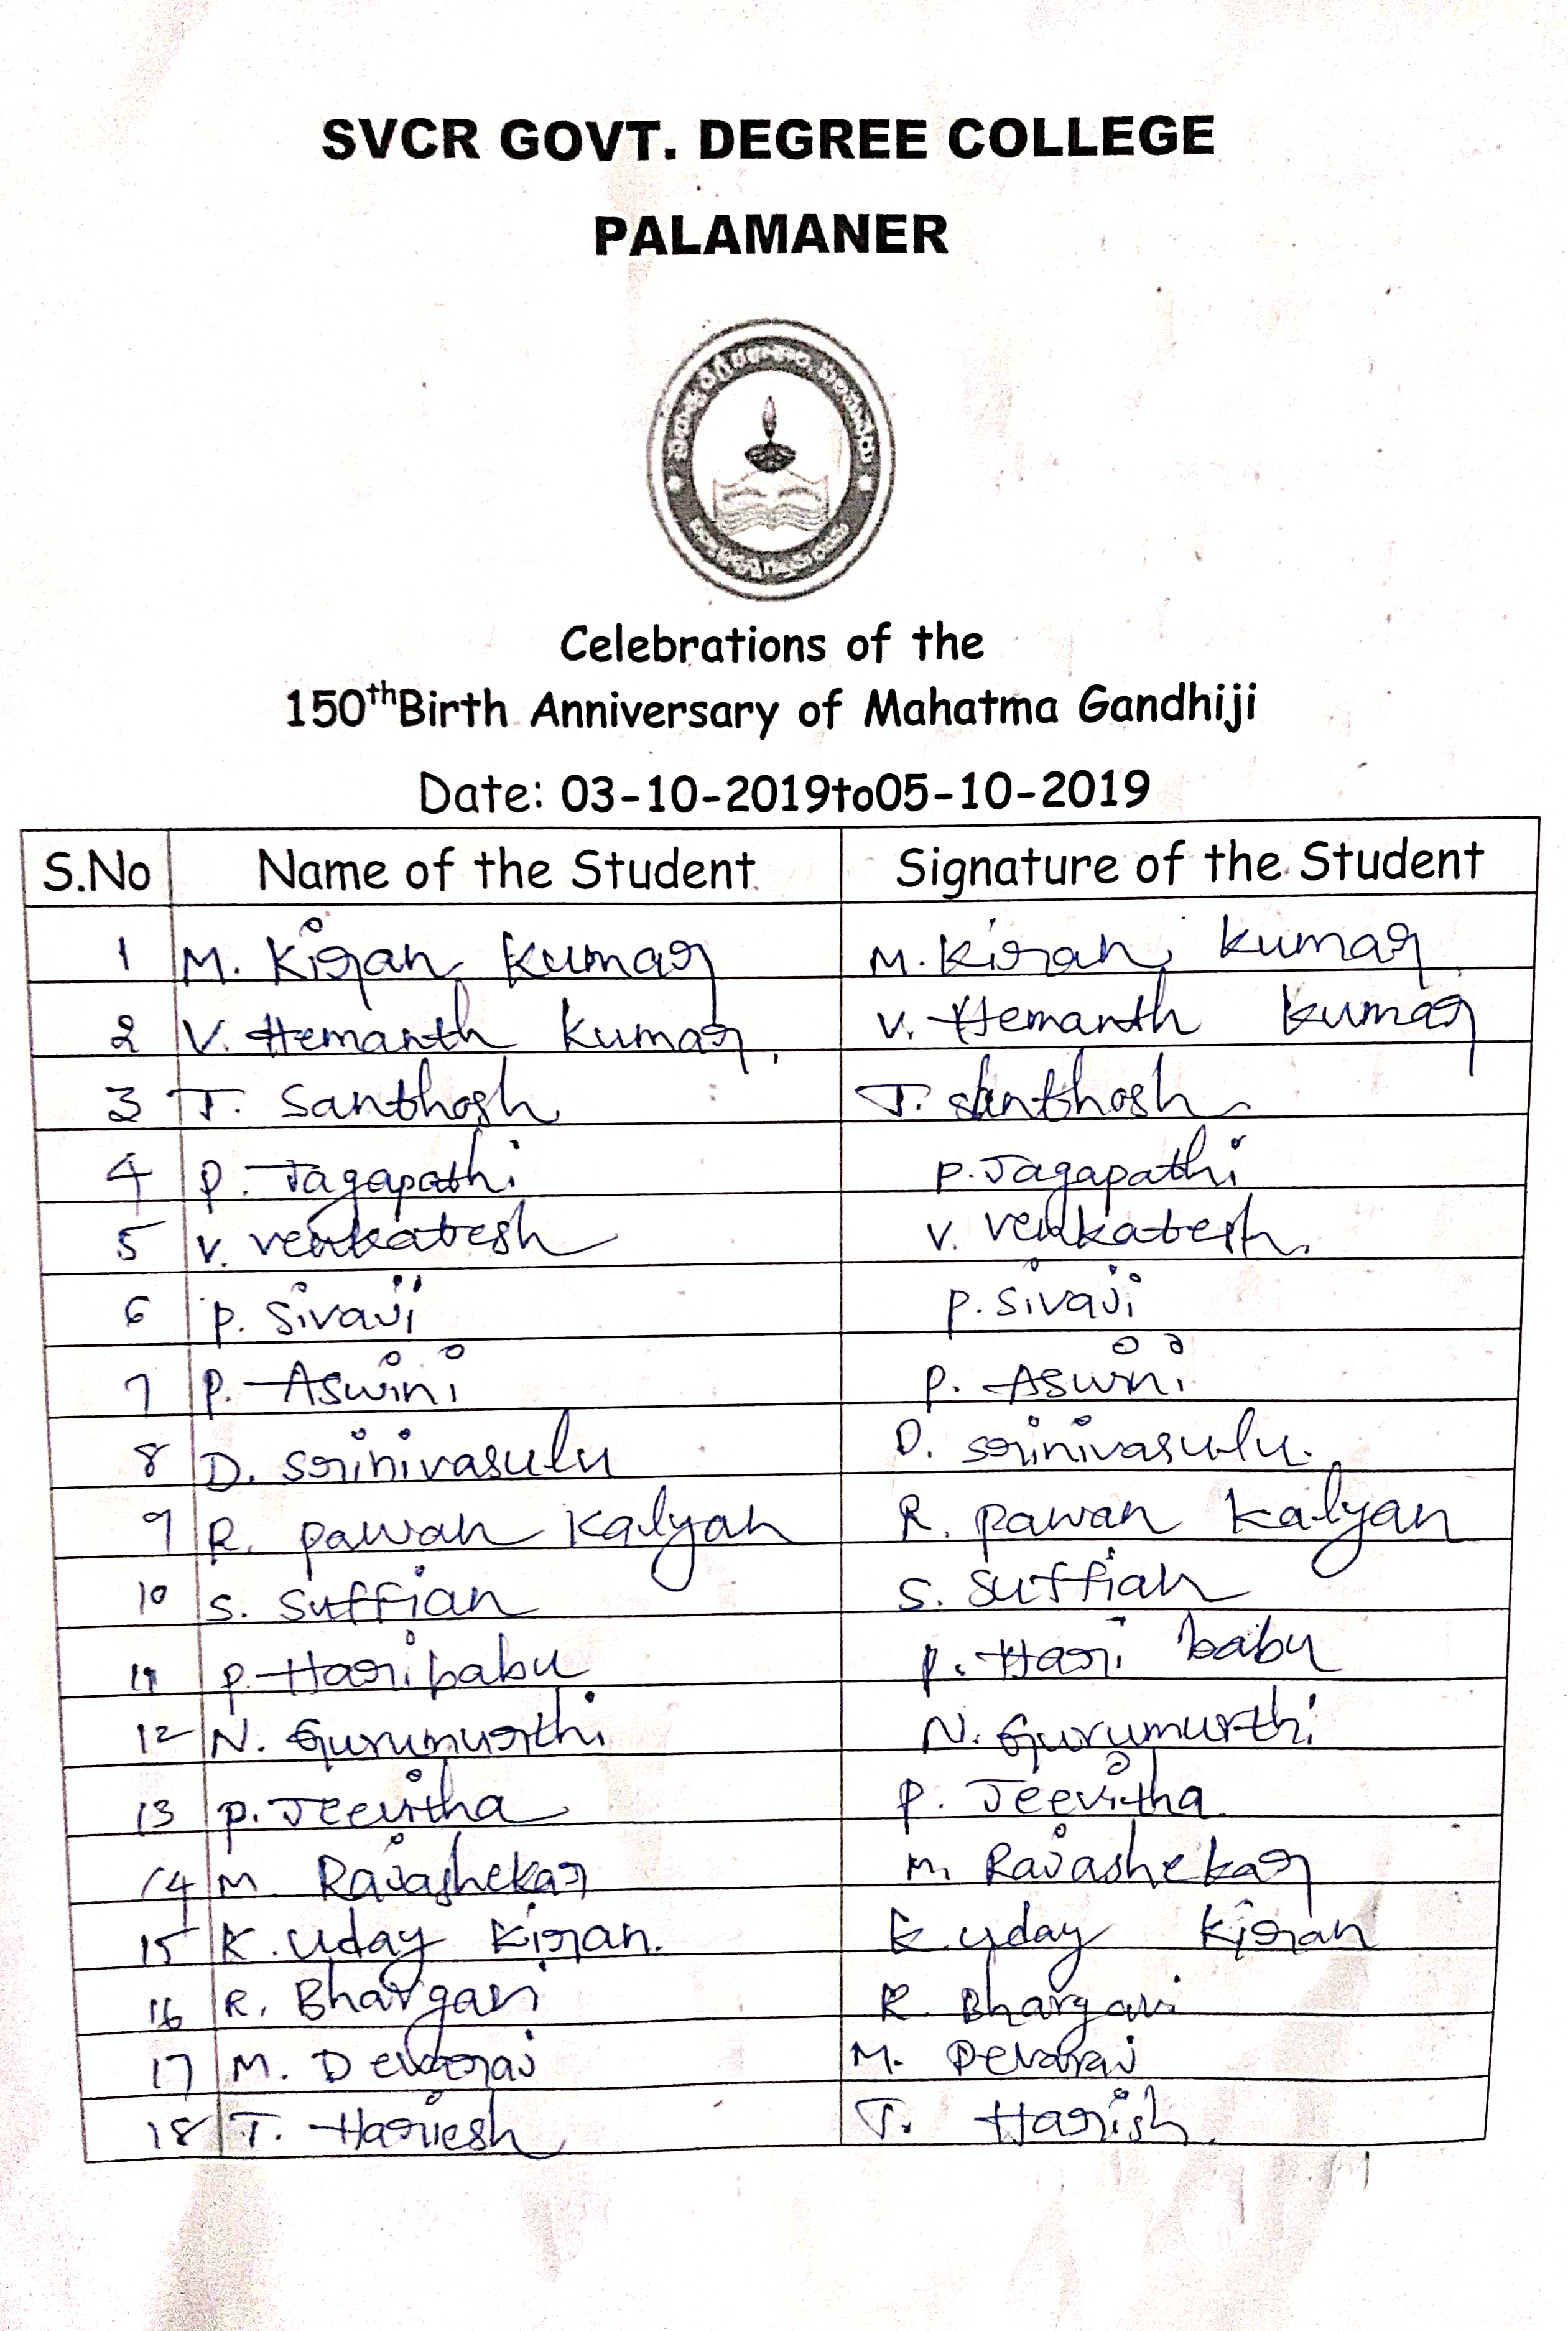 SVCR GOVT. DEGREE COLLEGE
PALAMANER
Celebrations of the
150thBirth Anniversary of Mahatma Gandhiji
Date: 03-10-2019to05-10-2019
S.No Name of the Student Signature of the Student
1 M. Kiran Kumar M. Kiran Kumar
2 V. Hemanth Kumar V. Hemanth Kumar
3 T. Santhosh T. Santhosh
4 P. Jagapathi P. Jagapathi
5 V. Venkatesh V. Venkatesh
6 P. Sivaji P. Sivaji
7 P. Aswini P. Aswini
8 D. Srinivasulu D. Srinivasulu
9 R. Pawan Kalyan R. Pawan Kalyan
10 S. Suffian S. Suffian
11 P. Haribabu P. Hari babu
12 N. Gurumurthi N. Gurumurthi
13 P. Jeevitha P. Jeevitha
14 M. Rajashekar M. Rajashekar
15 K. Uday Kiran. K. Uday Kiran
16 R. Bhargavi R. Bhargavi
17 M. Devaraj M. Devaraj
18 T. Hariesh T. Harish